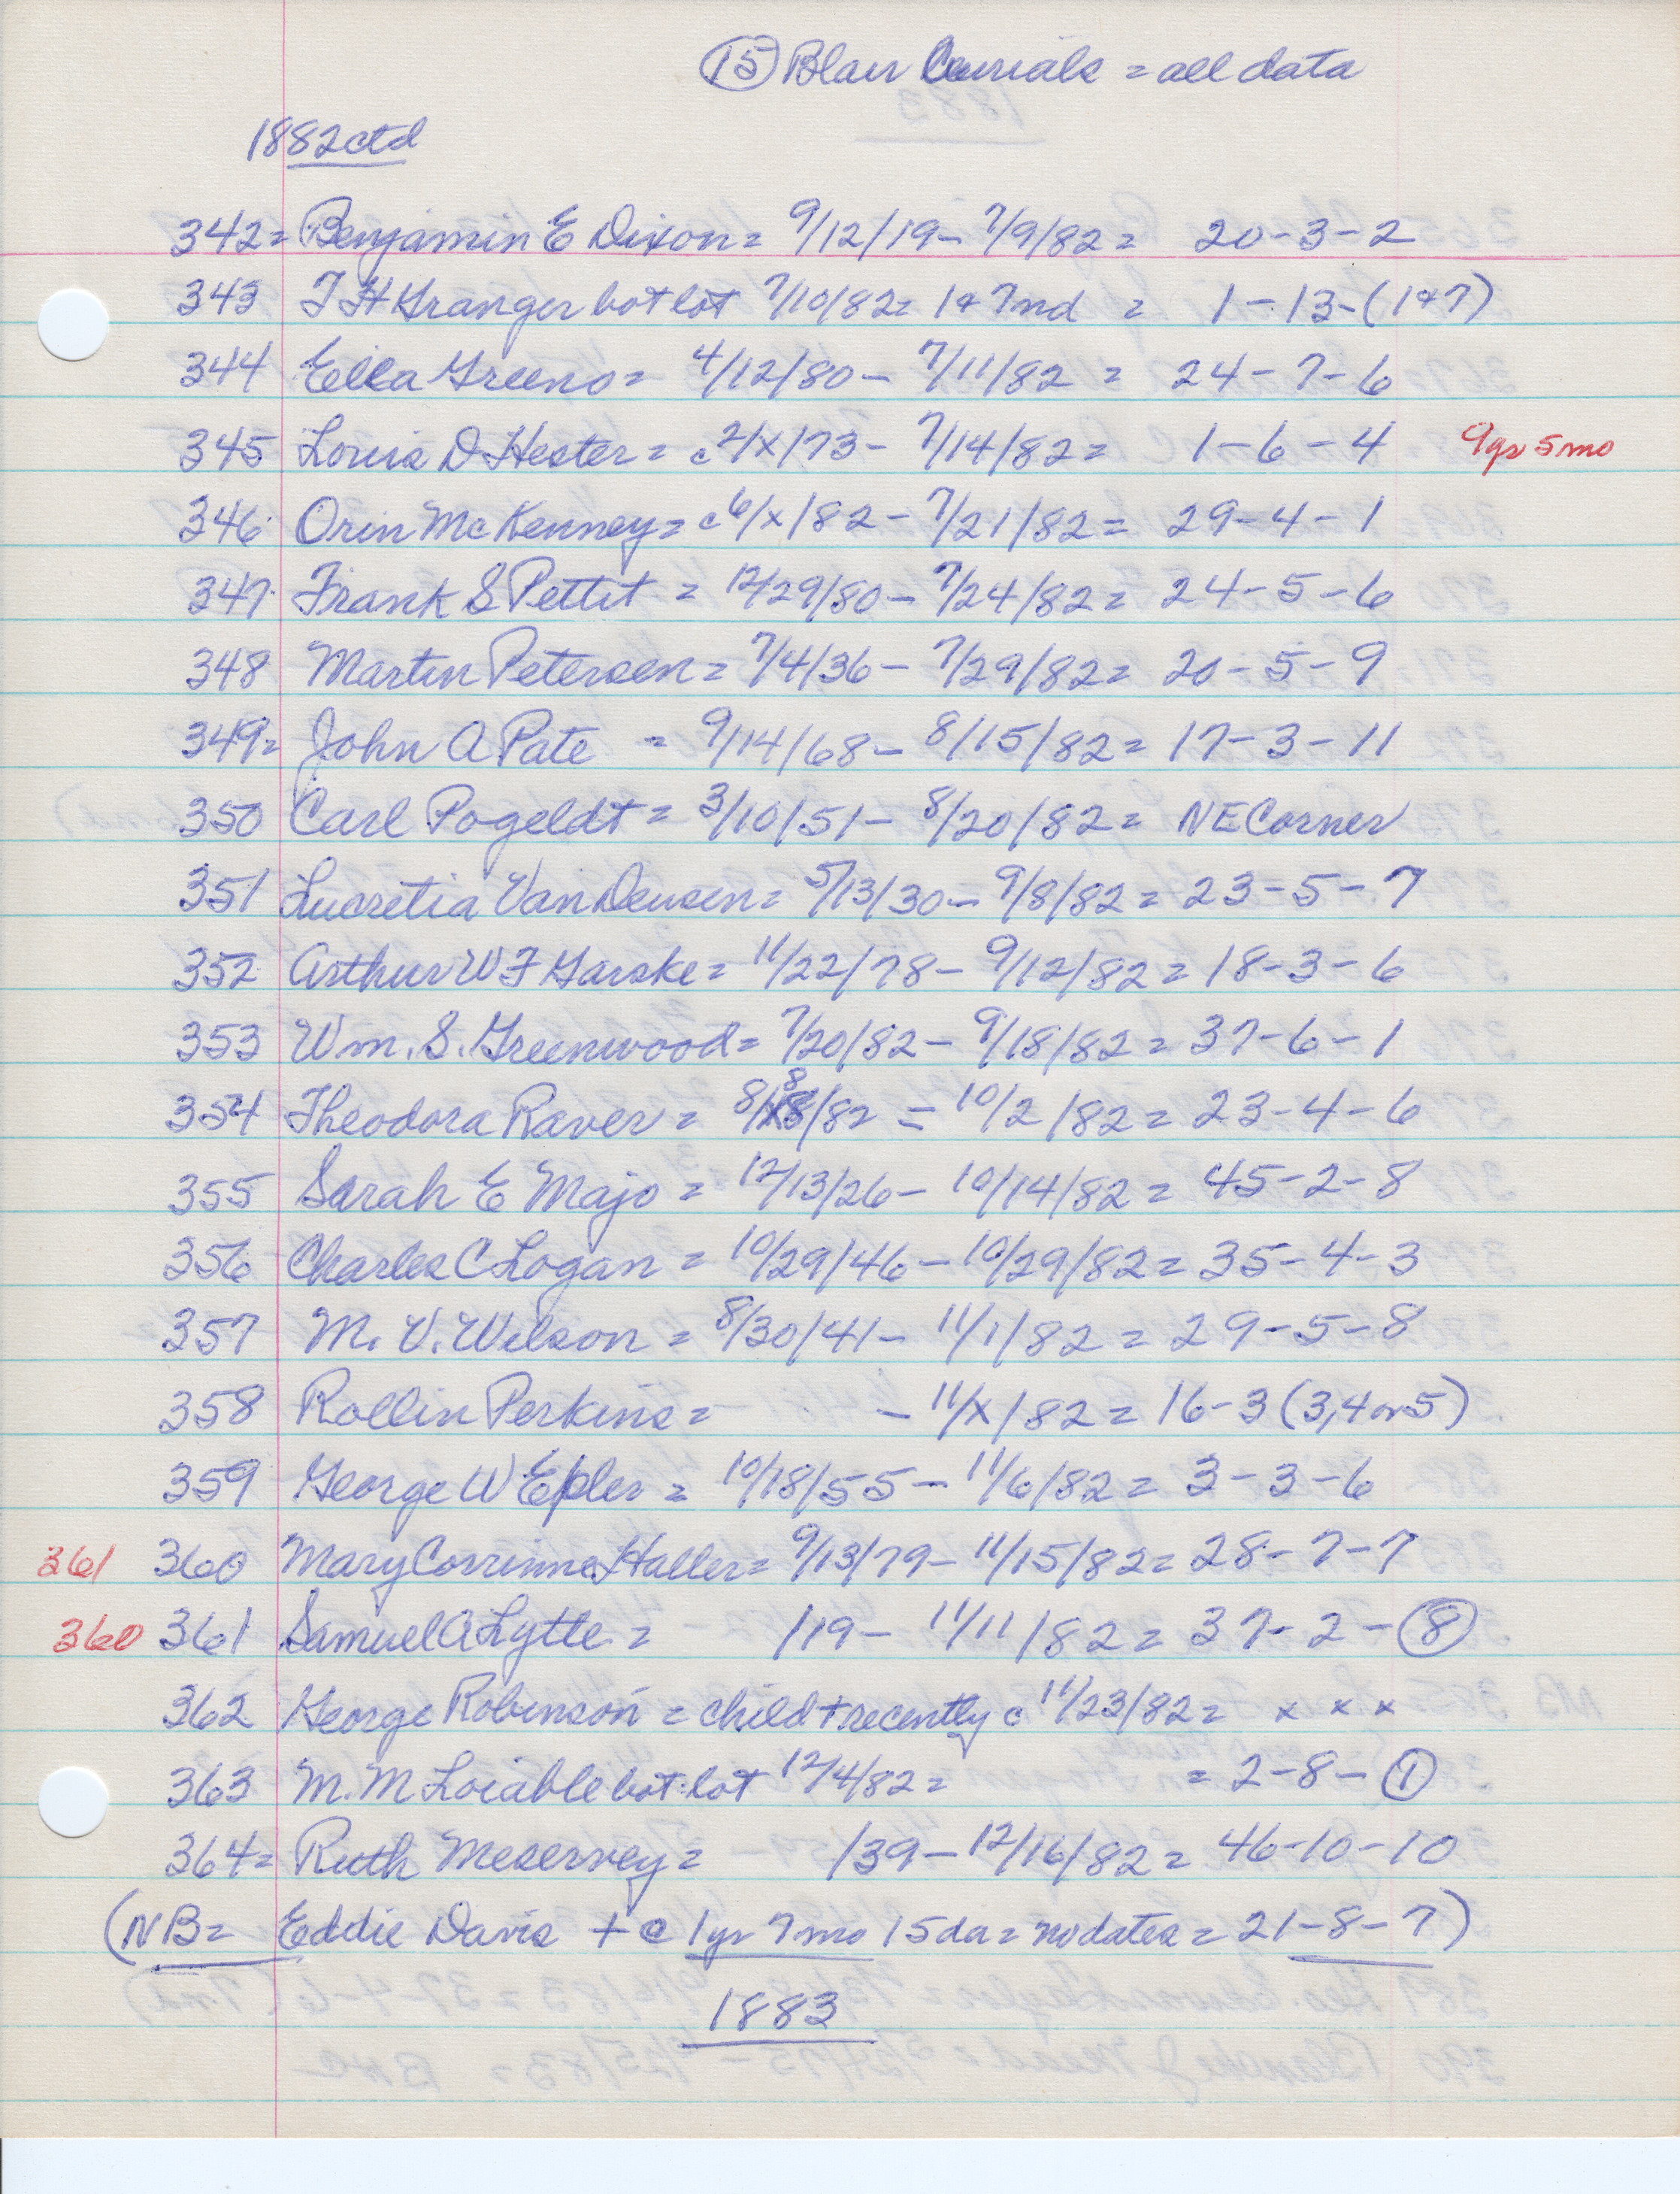 (15) Blair Burials = all data
1882 ctd
342 = Benjamin E Dixon = 9/12/19 - 7/9/82 = 20-3-2
343 T H Granger bot lot 7/10/82 = 1+7nd = 1-13-(1+7)
344 Ella Greeno = 4/12/80 - 7/11/82 = 24-7-6
345 Louis D Hester = c 2/x/73 - 7/14/82 = 1-6-4 9yr 5mo
346 Orin McKenney = c 6/x/82 - 7/21/82 = 29-4-1
347 Frank S Pettit = 12/29/80 - 7/24/82 = 24-5-6
348 Martin Petersen = 7/4/36 - 7/29/82 = 20-5-9
349 = John A Pate = 9/14/68 - 8/15/82 = 17-3-11
350 Carl Pogeldt = 3/10/51 - 8/20/82 = NE Corner
351 Lucretia Van Deusen = 5/13/30 - 9/8/82 = 23-5-7
352 Arthur W F Garske = 11/22/78 - 9/12/82 = 18-3-6
353 Wm. S. Greenwood = 7/20/82 - 9/18/82 = 37-6-1
354 Theodora Raver = 8/8/82 = 10/2/82 = 23-4-6
355 Sarah E Majo = 12/13/26 - 10/14/82 = 45-2-8
356 Charles C Logan = 10/29/46 - 10/29/82 = 35-4-3
357 M. V. Wilson = 8/30/41 - 11/1/82 = 29-5-8
358 Rollin Perkins = - 11/x/82 = 16-3 (3,4 or 5)
359 George W Epler = 10/18/55 - 11/6/82 = 3-3-6
361 360 Mary Corrinne Haller = 9/13/79 - 11/15/82 = 28-7-7
360 361 Samuel A Lytle = /19 - 11/11/82 = 37-2-(8)
362 George Robinson = child + recently c 11/23/82 = x x x
363 M. M Loiable bot lot 12/4/82 = = 2-8-(1)
364 = Ruth Meservey = /39 - 12/16/82 = 46-10-10
(NB = Eddie Davis + @ 1yr 7mo 15da = no dates = 21-8-7)
1883